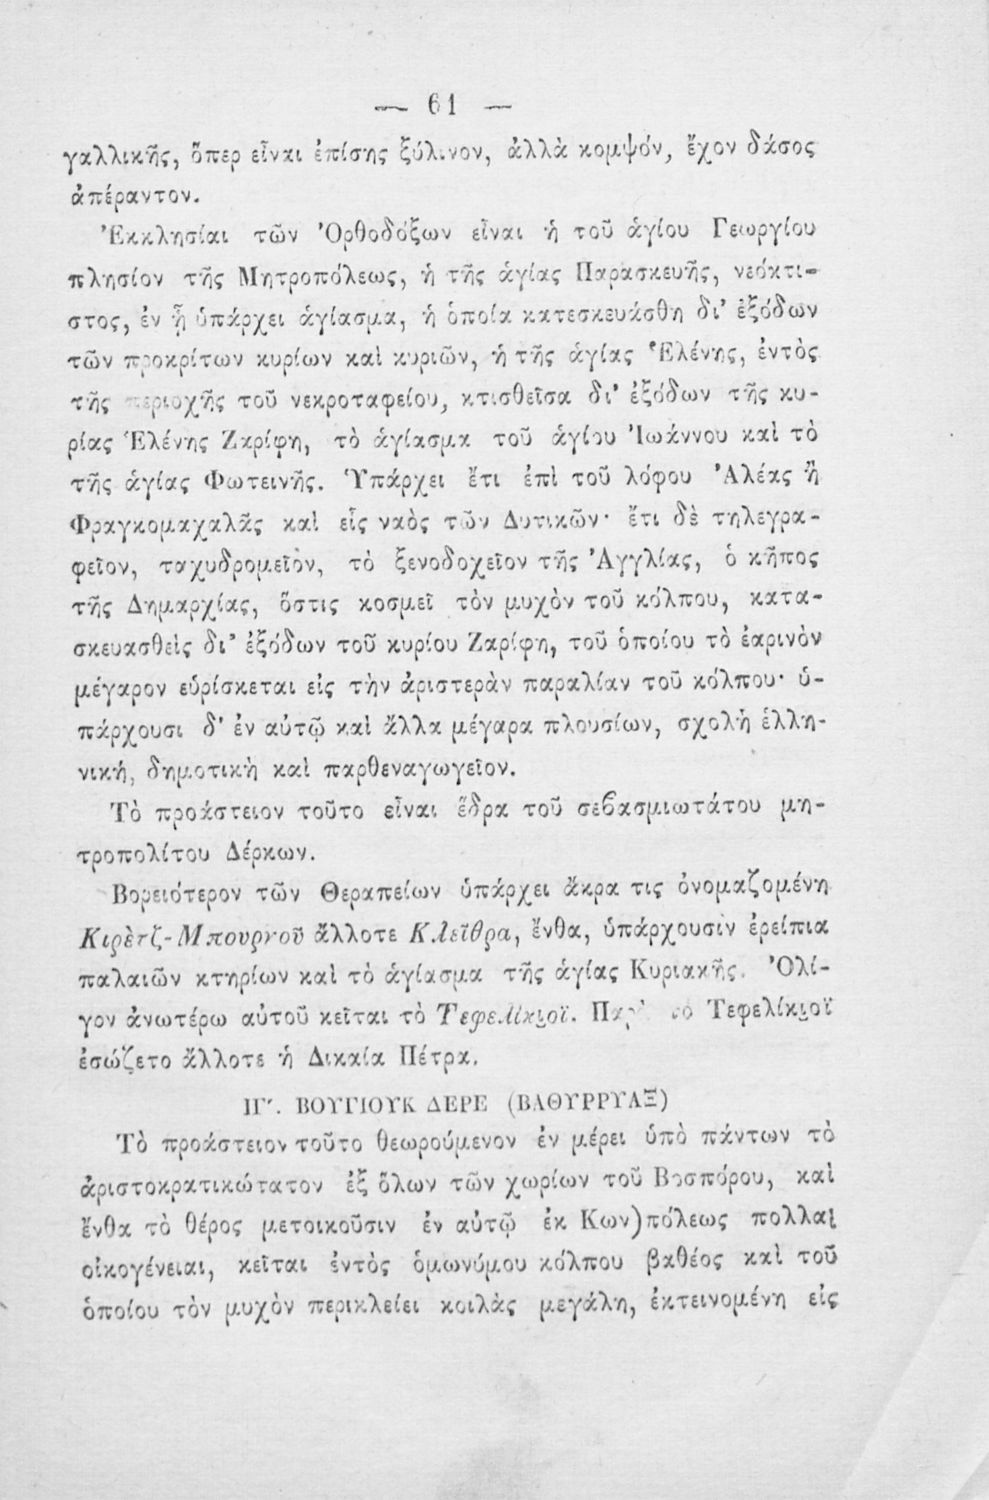 — 61 —
γαλλικῆς, ὅπερ εἶναι ἐπίσης ξύλινον, ἀλλὰ κομψόν, ἔχον δάσος
ἀπέραντον.
Ἐκκλησίαι τῶν Ὀρθοδόξων εἶναι ἡ τοῦ ἁγίου Γεωργίου
πλησίον τῆς Μητροπόλεως, ἡ τῆς ἁγίας Παρασκευῆς, νεόκτι-
στος, ἐν ᾗ ὑπάρχει ἁγίασμα, ἡ ὁποία κατεσκευάσθη δι’ ἐξόδων
τῶν προκρίτων κυρίων καὶ κυριῶν, ἡ τῆς ἁγίας Ἑλένης, ἐντὸς
τῆς περιοχῆς τοῦ νεκροταφείου, κτισθεῖσα δι’ ἐξόδων τῆς κυ-
ρίας Ἑλένης Ζαρίφη, τὸ ἁγίασμα τοῦ ἁγίου Ἰωάννου καὶ τὸ
τῆς ἁγίας Φωτεινῆς. Ὑπάρχει ἔτι ἐπὶ τοῦ λόφου Ἀλέας ἢ
Φραγκομαχαλᾶς καὶ εἷς ναὸς τῶν Δυτικῶν· ἔτι δὲ τηλεγρα-
φεῖον, ταχυδρομεῖον, τὸ ξενοδοχεῖον τῆς Ἀγγλίας, ὁ κῆπος
τῆς Δημαρχίας, ὅστις κοσμεῖ τὸν μυχὸν τοῦ κόλπου, κατα-
σκευασθεὶς δι’ ἐξόδων τοῦ κυρίου Ζαρίφη, τοῦ ὁποίου τὸ ἐαρινὸν
μέγαρον εὑρίσκεται εἰς τὴν ἀριστερὰν παραλίαν τοῦ κόλπου· ὑ-
πάρχουσι δ’ ἐν αὐτῷ καὶ ἄλλα μέγαρα πλουσίων, σχολὴ ἑλλη-
νική, δημοτικὴ καὶ παρθεναγωγεῖον.
Τὸ προάστειον τοῦτο εἶναι ἕδρα τοῦ σεβασμιωτάτου μη-
τροπολίτου Δέρκων.
Βορειότερον τῶν Θεραπείων ὑπάρχει ἄκρα τις ὀνομαζομένη
Κιρὲτζ-Μπουρνοῦ ἄλλοτε Κλεῖθρα, ἔνθα, ὑπάρχουσιν ἐρείπια
παλαιῶν κτηρίων καὶ τὸ ἁγίασμα τῆς ἁγίας Κυριακῆς. Ὀλί-
γον ἀνωτέρω αὐτοῦ κεῖται τὸ Τεφελίκιοϊ. τὸ Τεφελίκιοϊ
ἐσώζετο ἄλλοτε ἡ Δικαία Πέτρα.
ΙΓ′. ΒΟΥΓΙΟΥΚ ΔΕΡΕ (ΒΑΘΥΡΡΥΑΞ)
Τὸ προάστειον τοῦτο θεωρούμενον ἐν μέρει ὑπὸ πάντων τὸ
ἀριστοκρατικώτατον ἐξ ὅλων τῶν χωρίων τοῦ Βοσπόρου, καὶ
ἔνθα τὸ θέρος μετοικοῦσιν ἐν αὐτῷ ἐκ Κων)πόλεως πολλαὶ
οἰκογένειαι, κεῖται ἐντὸς ὁμωνύμου κόλπου βαθέος καὶ τοῦ
ὁποίου τὸν μυχὸν περικλείει κοιλὰς μεγάλη, ἐκτεινομένη εἰς